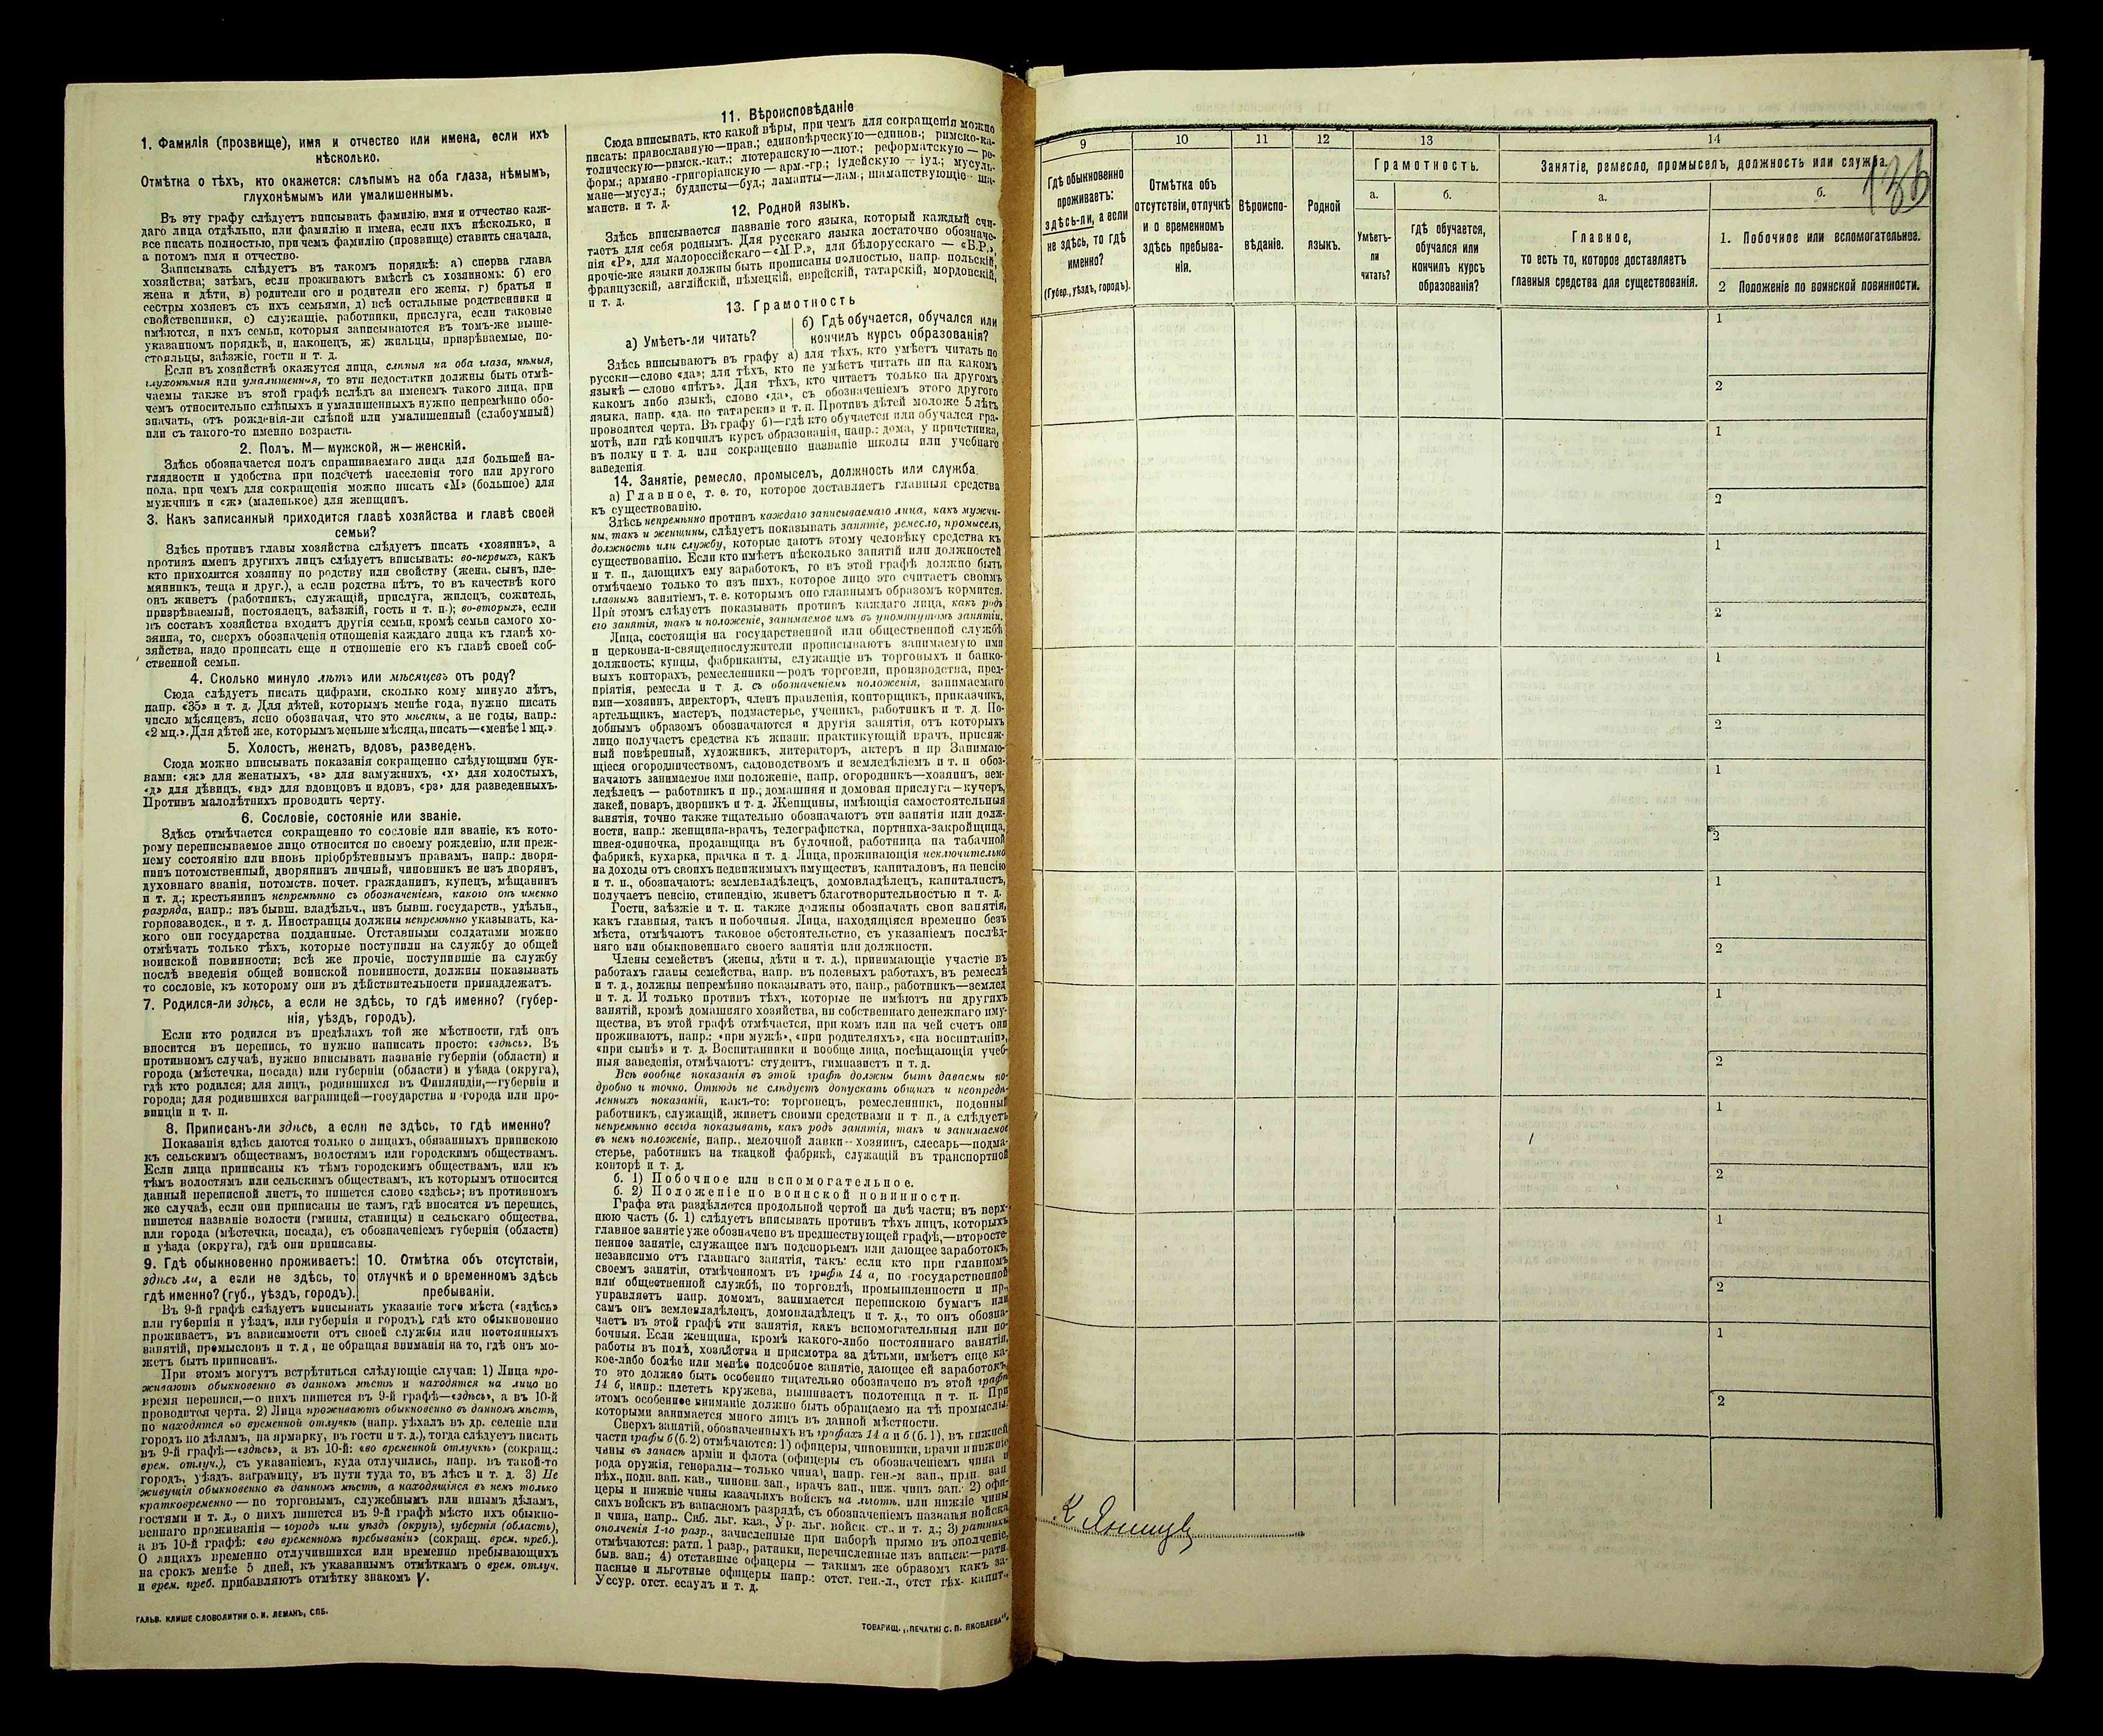 1. Фамилія (прозвище), имя и отчество или имена, если ихъ
нѣсколько.
Отмѣтка о тѣхъ, кто окажется: слѣпымъ на оба глаза, нѣмымъ,
глухонѣмымъ или умалишеннымъ.
Въ эту графу слѣдуетъ вписывать фамилію, имя и отчество каж-
даго лица отдѣльно, или фамилію и имена, если ихъ нѣсколько, и
все писать полностью, при чемъ фамилію (прозвище) ставить сначала,
а потомъ имя и отчество.
Записывать слѣдуетъ въ такомъ порядкѣ: а) сперва глава
хозяйства; затѣмъ, если проживаютъ вмѣстѣ съ хозяиномъ: б) его
жена и дѣти, в) родители его и родители его жены, г) братья и
сестры хозяевъ съ ихъ семьями, д) всѣ остальные родственники и
свойственники, е) служащіе, работники, прислуга, если таковые
имѣются, и ихъ семьи, которыя записываются въ томъ-же выше-
указанномъ порядкѣ, и, наконецъ, ж) жильцы, призрѣваемые, по-
стояльцы, заѣзжіе, гости и т. д.
Если въ хозяйствѣ окажутся лица, слѣпыя на оба глаза, нѣмыя,
глухонѣмыя или умалишенныя, то эти недостатки должны быть отмѣ-
чаемы также въ этой графѣ вслѣдъ за именемъ такого лица, при
чемъ относительно слѣпыхъ и умалишенныхъ нужно непремѣнно обо-
значать, отъ рожденія-ли слѣпой или умалишенный (слабоумный)
или съ такого-то именно возраста.
2. Полъ. М—мужской, ж—женскій.
Здѣсь обозначается полъ спрашиваемаго лица для большей на-
глядности и удобства при подсчетѣ населенія того или другого
пола, при чемъ для сокращенія можно писать «М» (большое) для
мужчинъ и «ж» (маленькое) для женщинъ.
3. Какъ записанный приходится главѣ хозяйства и главѣ своей
семьи?
Здѣсь противъ главы хозяйства слѣдуетъ писать «хозяинъ», а
противъ именъ другихъ лицъ слѣдуетъ вписывать: во-первыхъ, какъ
кто приходится хозяину по родству или свойству (жена, сынъ, пле-
мянникъ, теща и друг.), а если родства нѣтъ, то въ качествѣ кого
онъ живетъ (работникъ, служащій, прислуга, жилецъ, сожитель,
призрѣваемый, постоялецъ, заѣзжій, гость и т. п.); во-вторыхъ, если
въ составъ хозяйства входятъ другія семьи, кромѣ семьи самого хо-
зяина, то, сверхъ обозначенія отношенія каждаго лица къ главѣ хо-
зяйства, надо прописать еще и отношеніе его къ главѣ своей соб-
ственной семьи.
4. Сколько минуло лѣтъ или мѣсяцевъ отъ роду?
Сюда слѣдуетъ писать цифрами, сколько кому минуло лѣтъ,
напр. «35» и т. д. Для дѣтей, которымъ менѣе года, нужно писать
число мѣсяцевъ, ясно обозначая, что это мѣсяцы, а не годы, напр.:
«2 мц.». Для дѣтей же, которымъ меньше мѣсяца, писать—«менѣе 1 мц.»
5. Холостъ, женатъ, вдовъ, разведенъ.
Сюда можно вписывать показанія сокращенно слѣдующими бук-
вами: «ж» для женатыхъ, «з» для замужнихъ, «х» для холостыхъ,
«д» для дѣвицъ, «вд» для вдовцовъ и вдовъ, «рз» для разведенныхъ.
Противъ малолѣтнихъ проводить черту.
6. Сословіе, состояніе или званіе.
Здѣсь отмѣчается сокращенно то сословіе или званіе, къ кото-
рому переписываемое лицо относится по своему рожденію, или преж-
нему состоянію или вновь пріобрѣтеннымъ правамъ, напр.: дворя-
нинъ потомственный, дворянинъ личный, чиновникъ не изъ дворянъ,
духовнаго званія, потомств. почет. гражданинъ, купецъ, мѣщанинъ
и т. д.; крестьянинъ непремѣнно съ обозначеніемъ, какого онъ именно
разряда, напр.: изъ бывш. владѣльч., изъ бывш. государств., удѣльн.,
горнозаводск., и т. д. Иностранцы должны непремѣнно указывать, ка-
кого они государства подданные. Отставными солдатами можно
отмѣчать только тѣхъ, которые поступили на службу до общей
воинской повинности; всѣ же прочіе, поступившіе на службу
послѣ введенія общей воинской повинности, должны показывать
то сословіе, къ которому они въ дѣйствительности принадлежатъ.
7. Родился-ли здѣсь, а если не здѣсь, то гдѣ именно? (губер-
нія, уѣздъ, городъ).
Если кто родился въ предѣлахъ той же мѣстности, гдѣ онъ
вносится въ перепись, то нужно написать просто: «здѣсь». Въ
противномъ случаѣ, нужно вписывать названіе губерніи (области) и
города (мѣстечка, посада) или губерніи (области) и уѣзда (округа),
гдѣ кто родился; для лицъ, родившихся въ Финляндіи,—губерніи и
города; для родившихся заграницей—государства и города или про-
винціи и т. п.
8. Приписанъ-ли здѣсь, а если не здѣсь, то гдѣ именно?
Показанія здѣсь даются только о лицахъ, обязанныхъ припискою
къ сельскимъ обществамъ, волостямъ или городскимъ обществамъ.
Если лица приписаны къ тѣмъ городскимъ обществамъ, или къ
тѣмъ волостямъ или сельскимъ обществамъ, къ которымъ относится
данный переписной листъ, то пишется слово «здѣсь»; въ противномъ
же случаѣ, если они приписаны не тамъ, гдѣ вносятся въ перепись,
пишется названіе волости (гмины, станицы) и сельскаго общества,
или города (мѣстечка, посада), съ обозначеніемъ губерніи (области)
и уѣзда (округа), гдѣ они приписаны.
9. Гдѣ обыкновенно проживаетъ:
здѣсь ли, а если не здѣсь, то
гдѣ именно? (губ., уѣздъ, городъ).
10. Отмѣтка объ отсутствіи,
отлучкѣ и о временномъ здѣсь
пребываніи.
Въ 9-й графѣ слѣдуетъ вписывать указаніе того мѣста («здѣсь»
или губернія и уѣздъ, или губернія и городъ), гдѣ кто обыкновенно
проживаетъ, въ зависимости отъ своей службы или постоянныхъ
занятій, промысловъ и т. д, не обращая вниманія на то, гдѣ онъ мо-
жетъ быть приписанъ.
При этомъ могутъ встрѣтиться слѣдующіе случаи: 1) Лица про-
живаютъ обыкновенно въ данномъ мѣстѣ и находятся на лицо во
время переписи,—о нихъ пишется въ 9-й графѣ—«здѣсь», а въ 10-й
проводится черта. 2) Лица проживаютъ обыкновенно въ данномъ мѣстѣ,
но находятся во временной отлучкѣ (напр. уѣхалъ въ др. селеніе или
городъ по дѣламъ, на ярмарку, въ гости и т. д.), тогда слѣдуетъ писать
въ 9-й графѣ—«здѣсь», а въ 10-й: «во временной отлучкѣ» (сокращ.:
врем. отлуч.), съ указаніемъ, куда отлучились, напр. въ такой-то
городъ, уѣздъ, заграницу, въ пути туда то, въ лѣсъ и т. д. 3) Не
живущія обыкновенно въ данномъ мѣстѣ, а находящіяся въ немъ только
кратковременно—по торговымъ, служебнымъ или инымъ дѣламъ,
гостями и т. д., о нихъ пишется въ 9-й графѣ мѣсто ихъ обыкно-
веннаго проживанія—городъ или уѣздъ (округъ), губернія (область),
а въ 10-й графѣ: «во временномъ пребываніи» (сокращ. врем. преб.).
О лицахъ временно отлучившихся или временно пребывающихъ
на срокъ менѣе 5 дней, къ указаннымъ отмѣткамъ о врем. отлуч.
и врем. преб. прибавляютъ отмѣтку знакомъ V.
ГАЛЬВ. КЛИШЕ СЛОВОЛИТНИ О. И. ЛЕМАНЪ, СПБ.
11. Вѣроисповѣданіе
Сюда вписывать, кто какой вѣры, при чемъ для сокращенія можно
писать: православную—прав.; единовѣрческую—единов.; римско-ка-
толическую—римск.-кат.; лютеранскую—лют.; реформатскую—ре-
форм.; армяно-григоріанскую—арм.-гр.; іудейскую—іуд.; мусуль-
мане—мусул.; буддисты—буд.; ламаиты—лам.; шаманствующіе—ша-
манств. и т. д.
12. Родной языкъ.
Здѣсь вписывается названіе того языка, который каждый счи-
таетъ для себя роднымъ. Для русскаго языка достаточно обозначе-
нія «Р», для малороссійскаго—«М.Р.», для бѣлорусскаго—«Б.Р.»,
прочіе-же языки должны быть прописаны полностью, напр. польскій,
французскій, англійскій, нѣмецкій, еврейскій, татарскій, мордовскій,
и т. д.
13. Грамотность
а) Умѣетъ-ли читать?
б) Гдѣ обучается, обучался или
кончилъ курсъ образованія?
Здѣсь вписываютъ въ графу а) для тѣхъ, кто умѣетъ читать по
русски—слово «да»; для тѣхъ, кто не умѣетъ читать ни на какомъ
языкѣ—слово «нѣтъ». Для тѣхъ, кто читаетъ только на другомъ
какомъ либо языкѣ, слово «да», съ обозначеніемъ этого другого
языка, напр. «да, по татарски» и т. п. Противъ дѣтей моложе 5 лѣтъ
проводится черта. Въ графу б)—гдѣ кто обучается или обучался гра-
мотѣ, или гдѣ кончилъ курсъ образованія, напр.: дома, у причетника,
въ полку и т. д. или сокращенно названіе школы или учебнаго
заведенія.
14. Занятіе, ремесло, промыселъ, должность или служба.
а) Главное, т. е. то, которое доставляетъ главныя средства
къ существованію.
Здѣсь непремѣнно противъ каждаго записываемаго лица, какъ мужчи-
ны, такъ и женщины, слѣдуетъ показывать занятіе, ремесло, промыселъ,
должность или службу, которые даютъ этому человѣку средства къ
существованію. Если кто имѣетъ нѣсколько занятій или должностей
и т. п., дающихъ ему заработокъ, то въ этой графѣ должно быть
отмѣчаемо только то изъ нихъ, которое лицо это считаетъ своимъ
главнымъ занятіемъ, т. е. которымъ оно главнымъ образомъ кормится.
При этомъ слѣдуетъ показывать противъ каждаго лица, какъ родъ
его занятія, такъ и положеніе, занимаемое имъ въ упомянутомъ занятіи.
Лица, состоящія на государственной или общественной службѣ
и церковно-и-священнослужители прописываютъ занимаемую ими
должность; купцы, фабриканты, служащіе въ торговыхъ и банко-
выхъ конторахъ, ремесленники—родъ торговли, производства, пред-
пріятія, ремесла и т. д. съ обозначеніемъ положенія, занимаемаго
ими—хозяинъ, директоръ, членъ правленія, конторщикъ, приказчикъ,
артельщикъ, мастеръ, подмастерье, ученикъ, работникъ и т. д. По-
добнымъ образомъ обозначаются и другія занятія, отъ которыхъ
лицо получаетъ средства къ жизни: практикующій врачъ, присяж-
ный повѣренный, художникъ, литераторъ, актеръ и пр Занимаю-
щіеся огородничествомъ, садоводствомъ и земледѣліемъ и т. п обоз-
начаютъ занимаемое ими положеніе, напр. огородникъ—хозяинъ, зем-
ледѣлецъ—работникъ и пр.; домашняя и домовая прислуга—кучеръ,
лакей, поваръ, дворникъ и т. д. Женщины, имѣющія самостоятельныя
занятія, точно также тщательно обозначаютъ эти занятія или долж-
ности, напр.: женщина-врачъ, телеграфистка, портниха-закройщица,
швея-одиночка, продавщица въ булочной, работница на табачной
фабрикѣ, кухарка, прачка и т. д. Лица, проживающія исключительно
на доходы отъ своихъ недвижимыхъ имуществъ, капиталовъ, на пенсію
и т. п., обозначаютъ: землевладѣлецъ, домовладѣлецъ, капиталистъ,
получаетъ пенсію, стипендію, живетъ благотворительностью и т. д.
Гости, заѣзжіе и т. п. также должны обозначать свои занятія,
какъ главныя, такъ и побочныя. Лица, находящіяся временно безъ
мѣста, отмѣчаютъ таковое обстоятельство, съ указаніемъ послѣд-
няго или обыкновеннаго своего занятія или должности.
Члены семействъ (жены, дѣти и т. д.), принимающіе участіе въ
работахъ главы семейства, напр. въ полевыхъ работахъ, въ ремеслѣ
и т. д., должны непремѣнно показывать это, напр., работникъ—землед
и т. д. И только противъ тѣхъ, которые не имѣютъ ни другихъ
занятій, кромѣ домашняго хозяйства, ни собственнаго денежнаго иму-
щества, въ этой графѣ отмѣчается, при комъ или на чей счетъ они
проживаютъ, напр.: «при мужѣ», «при родителяхъ», «на воспитаніи»,
«при сынѣ» и т. д. Воспитанники и вообще лица, посѣщающія учеб-
ныя заведенія, отмѣчаютъ: студентъ, гимназистъ и т. д.
Всѣ вообще показанія въ этой графѣ должны быть даваемы по-
дробно и точно. Отнюдь не слѣдуетъ допускать общихъ и неопредѣ-
ленныхъ показаній, какъ-то: торговецъ, ремесленникъ, поденный
работникъ, служащій, живетъ своими средствами и т. п., а слѣдуетъ
непремѣнно всегда показывать, какъ родъ занятія, такъ и занимаемое
въ немъ положеніе, напр., мелочной лавки--хозяинъ, слесарь—подма-
стерье, работникъ на ткацкой фабрикѣ, служащій въ транспортной
конторѣ и т. д.
б. 1) Побочное или вспомогательное.
б. 2) Положеніе по воинской повинности.
Графа эта раздѣляется продольной чертой на двѣ части; въ верх-
нюю часть (б. 1) слѣдуетъ вписывать противъ тѣхъ лицъ, которыхъ
главное занятіе уже обозначено въ предшествующей графѣ,—второсте-
пенное занятіе, служащее имъ подспорьемъ или дающее заработокъ,
независимо отъ главнаго занятія, такъ: если кто при главномъ
своемъ занятіи, отмѣченномъ въ графѣ 14 а, по государственной
или общественной службѣ, по торговлѣ, промышленности и пр.,
управляетъ напр. домомъ, занимается перепискою бумагъ или
самъ онъ землевладѣлецъ, домовладѣлецъ и т. д., то онъ обозна-
чаетъ въ этой графѣ эти занятія, какъ вспомогательныя или по-
бочныя. Если женщина, кромѣ какого-либо постояннаго занятія,
работы въ полѣ, хозяйства и присмотра за дѣтьми, имѣетъ еще ка-
кое-либо болѣе или менѣе подсобное занятіе, дающее ей заработокъ,
то это должно быть особенно тщательно обозначено въ этой графѣ
14 б, напр.: плететъ кружева, вышиваетъ полотенца и т. п. При
этомъ особенное вниманіе должно быть обращаемо на тѣ промыслы,
которыми занимается много лицъ въ данной мѣстности.
Сверхъ занятій, обозначенныхъ въ графахъ 14 а и б (б. 1), въ нижней
части графы б (б. 2) отмѣчаются: 1) офицеры, чиновники, врачи и нижніе
чины въ запасѣ арміи и флота (офицеры съ обозначеніемъ чина и
рода оружія, генералы—только чина), напр. ген.-м зап., прап. зап
пѣх., подп. зап. кав., чиновн. зап., врачъ зап., ниж. чинъ зап.· 2) офи-
церы и нижніе чины казачьихъ войскъ на льготѣ, или нижніе чины
сихъ войскъ въ запасномъ разрядѣ, съ обозначеніемъ названія войска
и чина, напр.. Сиб. льг. каз., Ур. льг. войск. ст., и т. д.; 3) ратники
ополченія 1-го разр., зачисленные при наборѣ прямо въ ополченіе,
отмѣчаются: ратн. 1 разр., ратники, перечисленные изъ запаса:—ратн.
быв. зап.; 4) отставные офицеры — такимъ же образомъ какъ за-
пасные и льготные офицеры напр.: отст. ген.-л., отст пѣх. капит.,
Уссур. отст. есаулъ и т. д.
ТОВАРИЩ. „ПЕЧАТНЯ С. П. ЯКОВЛЕВА“.
9
10
11
12
13
14
Гдѣ обыкновенно
проживаетъ:
здѣсь-ли, а если
не здѣсь, то гдѣ
именно?
(Губер., уѣздъ, городъ).
Отмѣтка объ
отсутствіи, отлучкѣ
и о временномъ
здѣсь пребыва-
ніи.
Вѣроиспо-
вѣданіе.
Родной
языкъ.
Грамотность.
а.
б.
Умѣетъ-
ли
читать?
гдѣ обучается,
обучался или
кончилъ курсъ
образованія?
Занятіе, ремесло, промыселъ, должность или служба.
а.
б.
Главное,
то есть то, которое доставляетъ
главныя средства для существованія.
1. Побочное или вспомогательное.
2 Положеніе по воинской повинности.
1
2
1
2
1
2
1
2
1
2
1
2
1
2
1
2
1
2
1
2